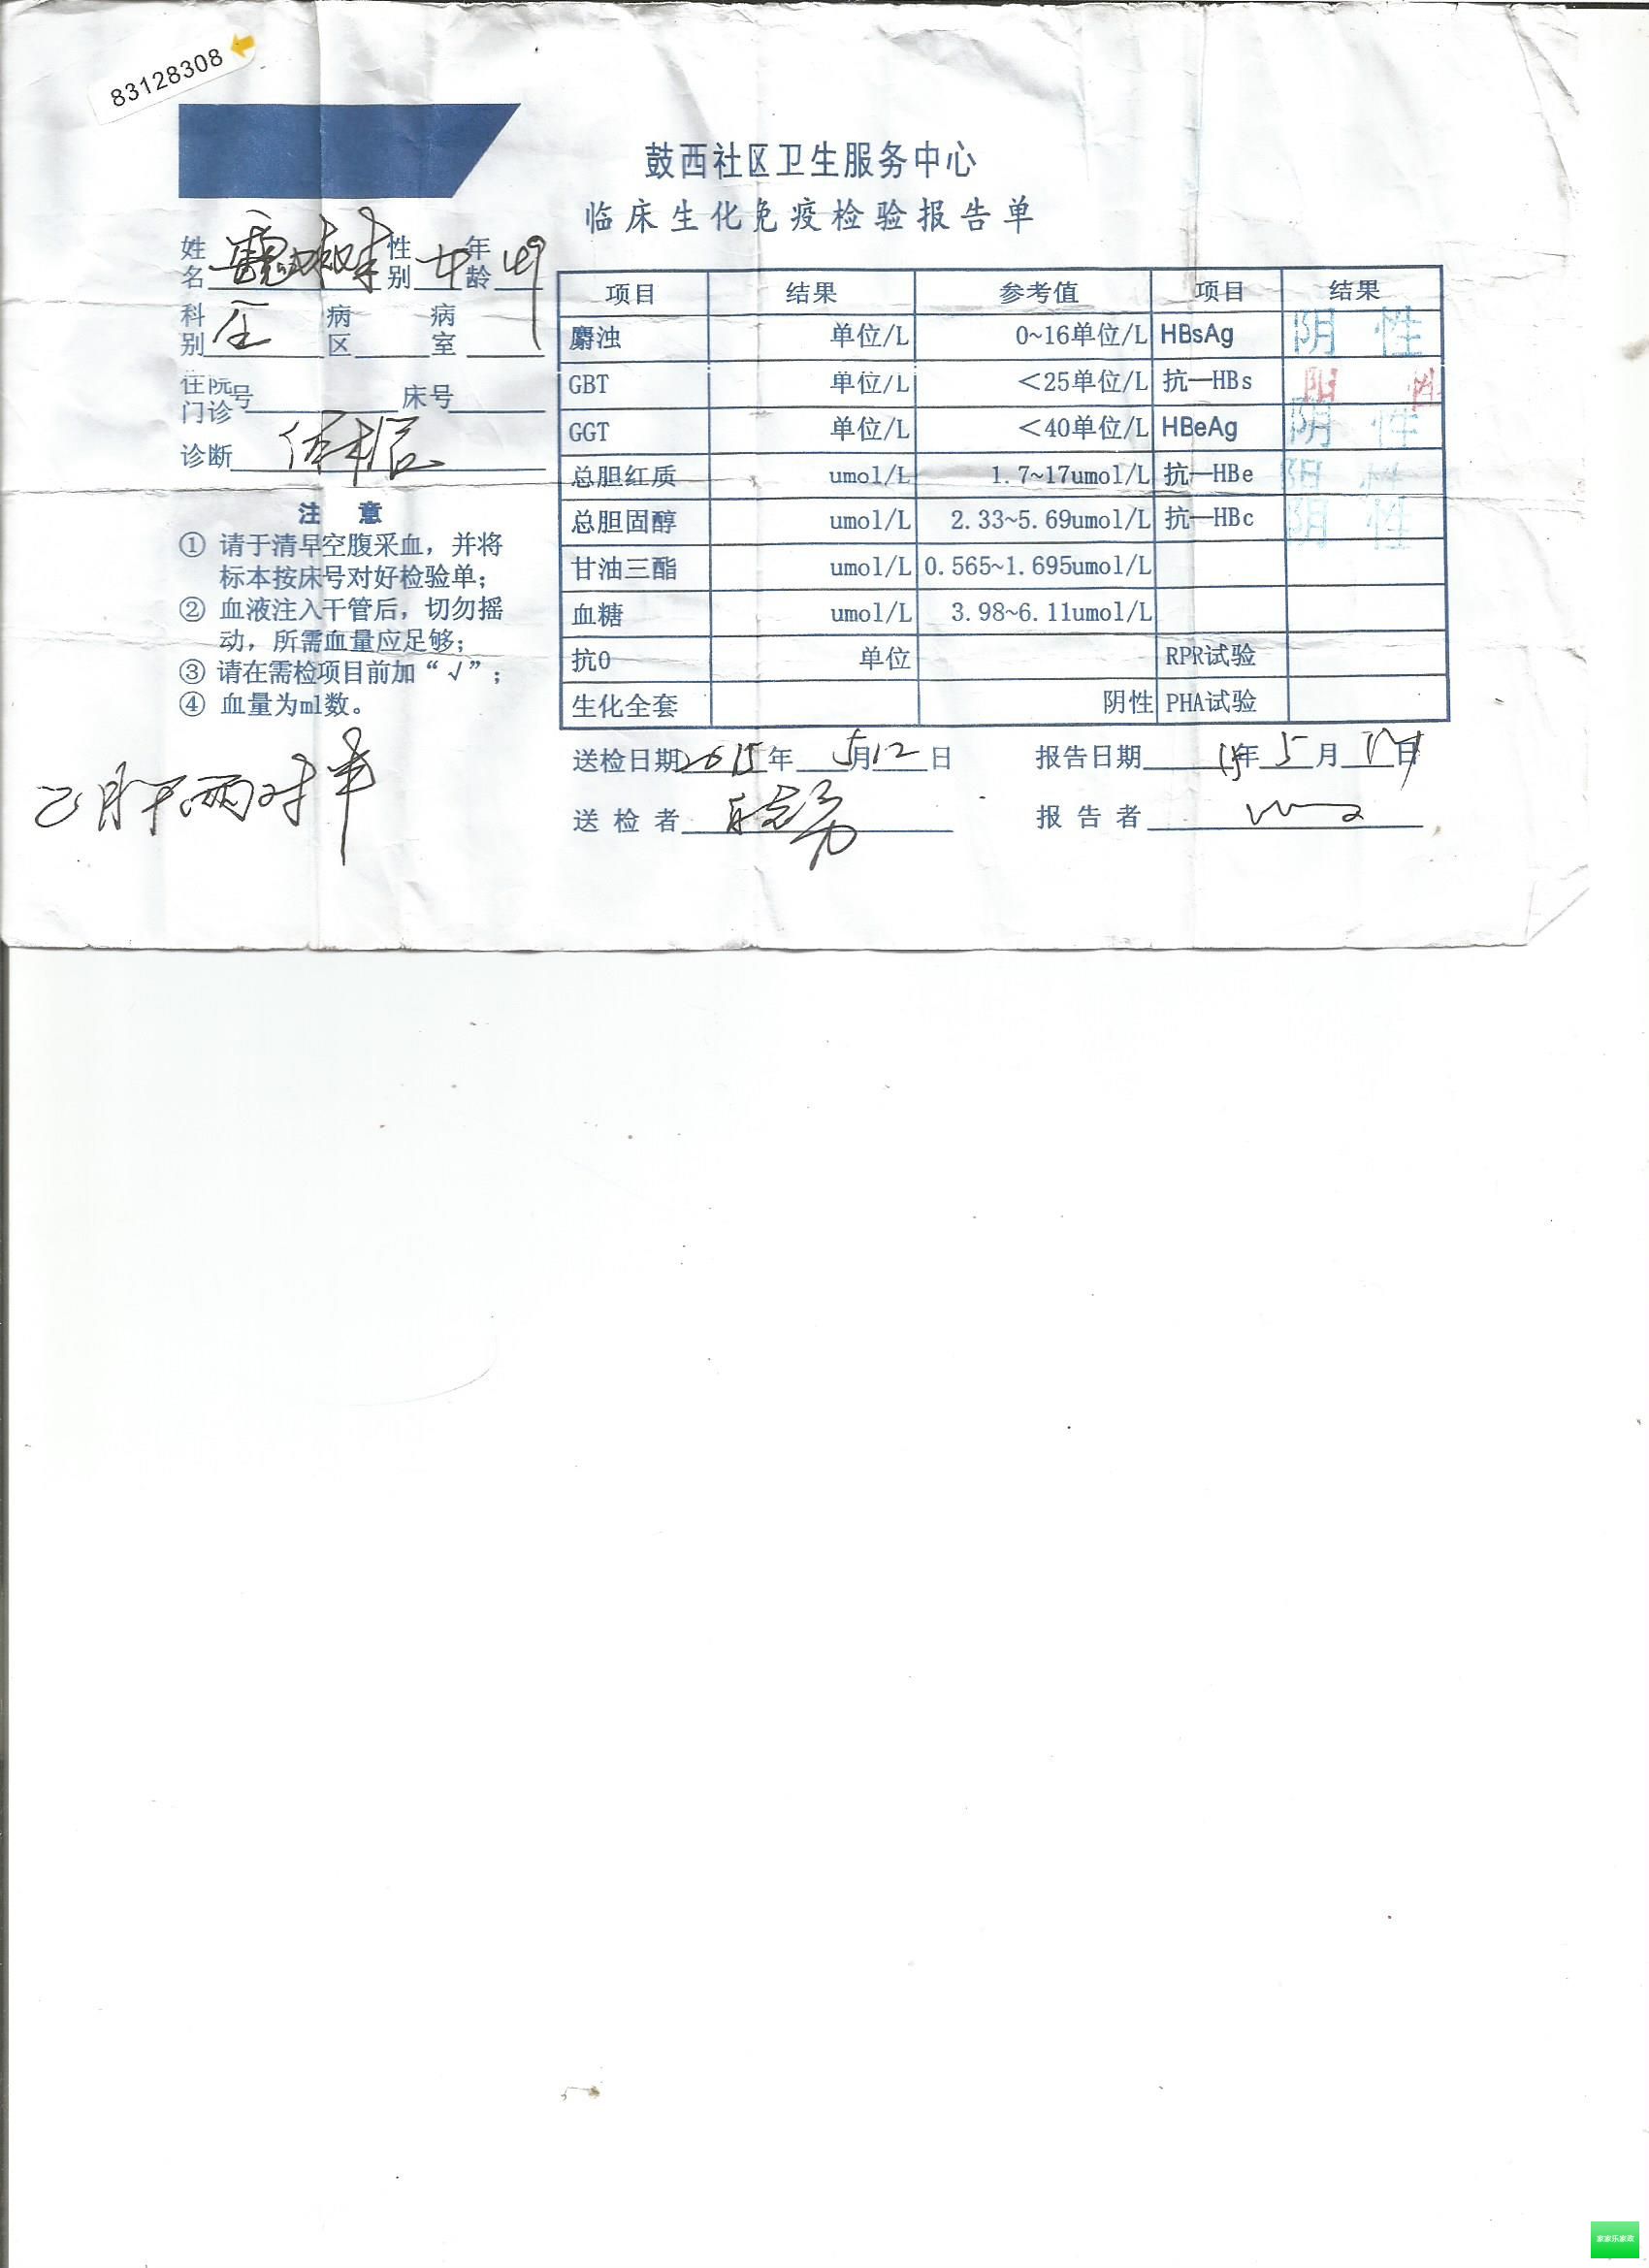 83128308
鼓西社区卫生服务中心
临床生化免疫检验报告单
姓名 性别 女 年龄 49
科别 全 病区 病室
住院门诊号 床号
诊断 体检
注 意
① 请于清早空腹采血，并将
标本按床号对好检验单；
② 血液注入干管后，切勿摇
动，所需血量应足够；
③ 请在需检项目前加“√”；
④ 血量为ml数。
乙肝两对半
项目 结果 参考值 项目 结果
麝浊 单位/L 0~16单位/L HBsAg 阴性
GBT 单位/L <25单位/L 抗—HBs 阳性
GGT 单位/L <40单位/L HBeAg 阴性
总胆红质 umol/L 1.7~17umol/L 抗—HBe 阴性
总胆固醇 umol/L 2.33~5.69umol/L 抗—HBc 阴性
甘油三酯 umol/L 0.565~1.695umol/L
血糖 umol/L 3.98~6.11umol/L
抗0 单位 RPR试验
生化全套 阴性 PHA试验
送检日期2015年5月12日 报告日期15年5月 日
送检者 报告者
家家乐家政